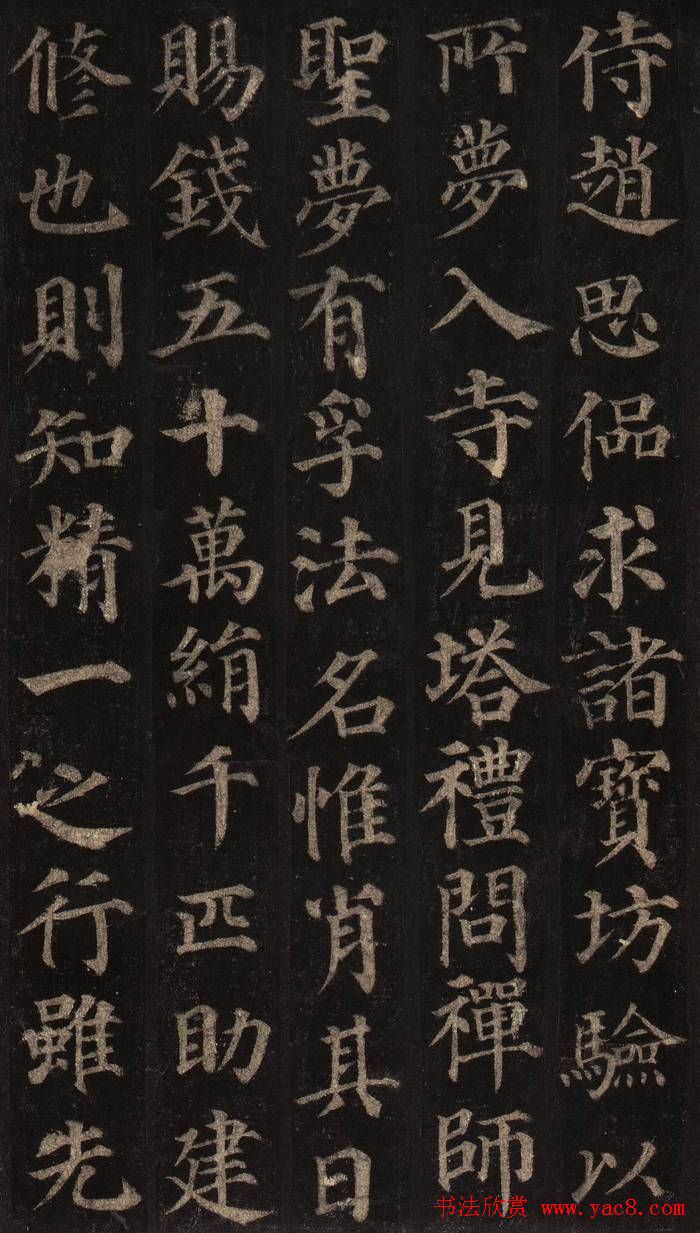 侍趙思偘求諸寶坊驗以
所夢入寺見塔禮問禪師
聖夢有孚法名惟肖其日
賜錢五十萬絹千匹助建
修也則知精一之行雖先
书法欣赏 www.yac8.com